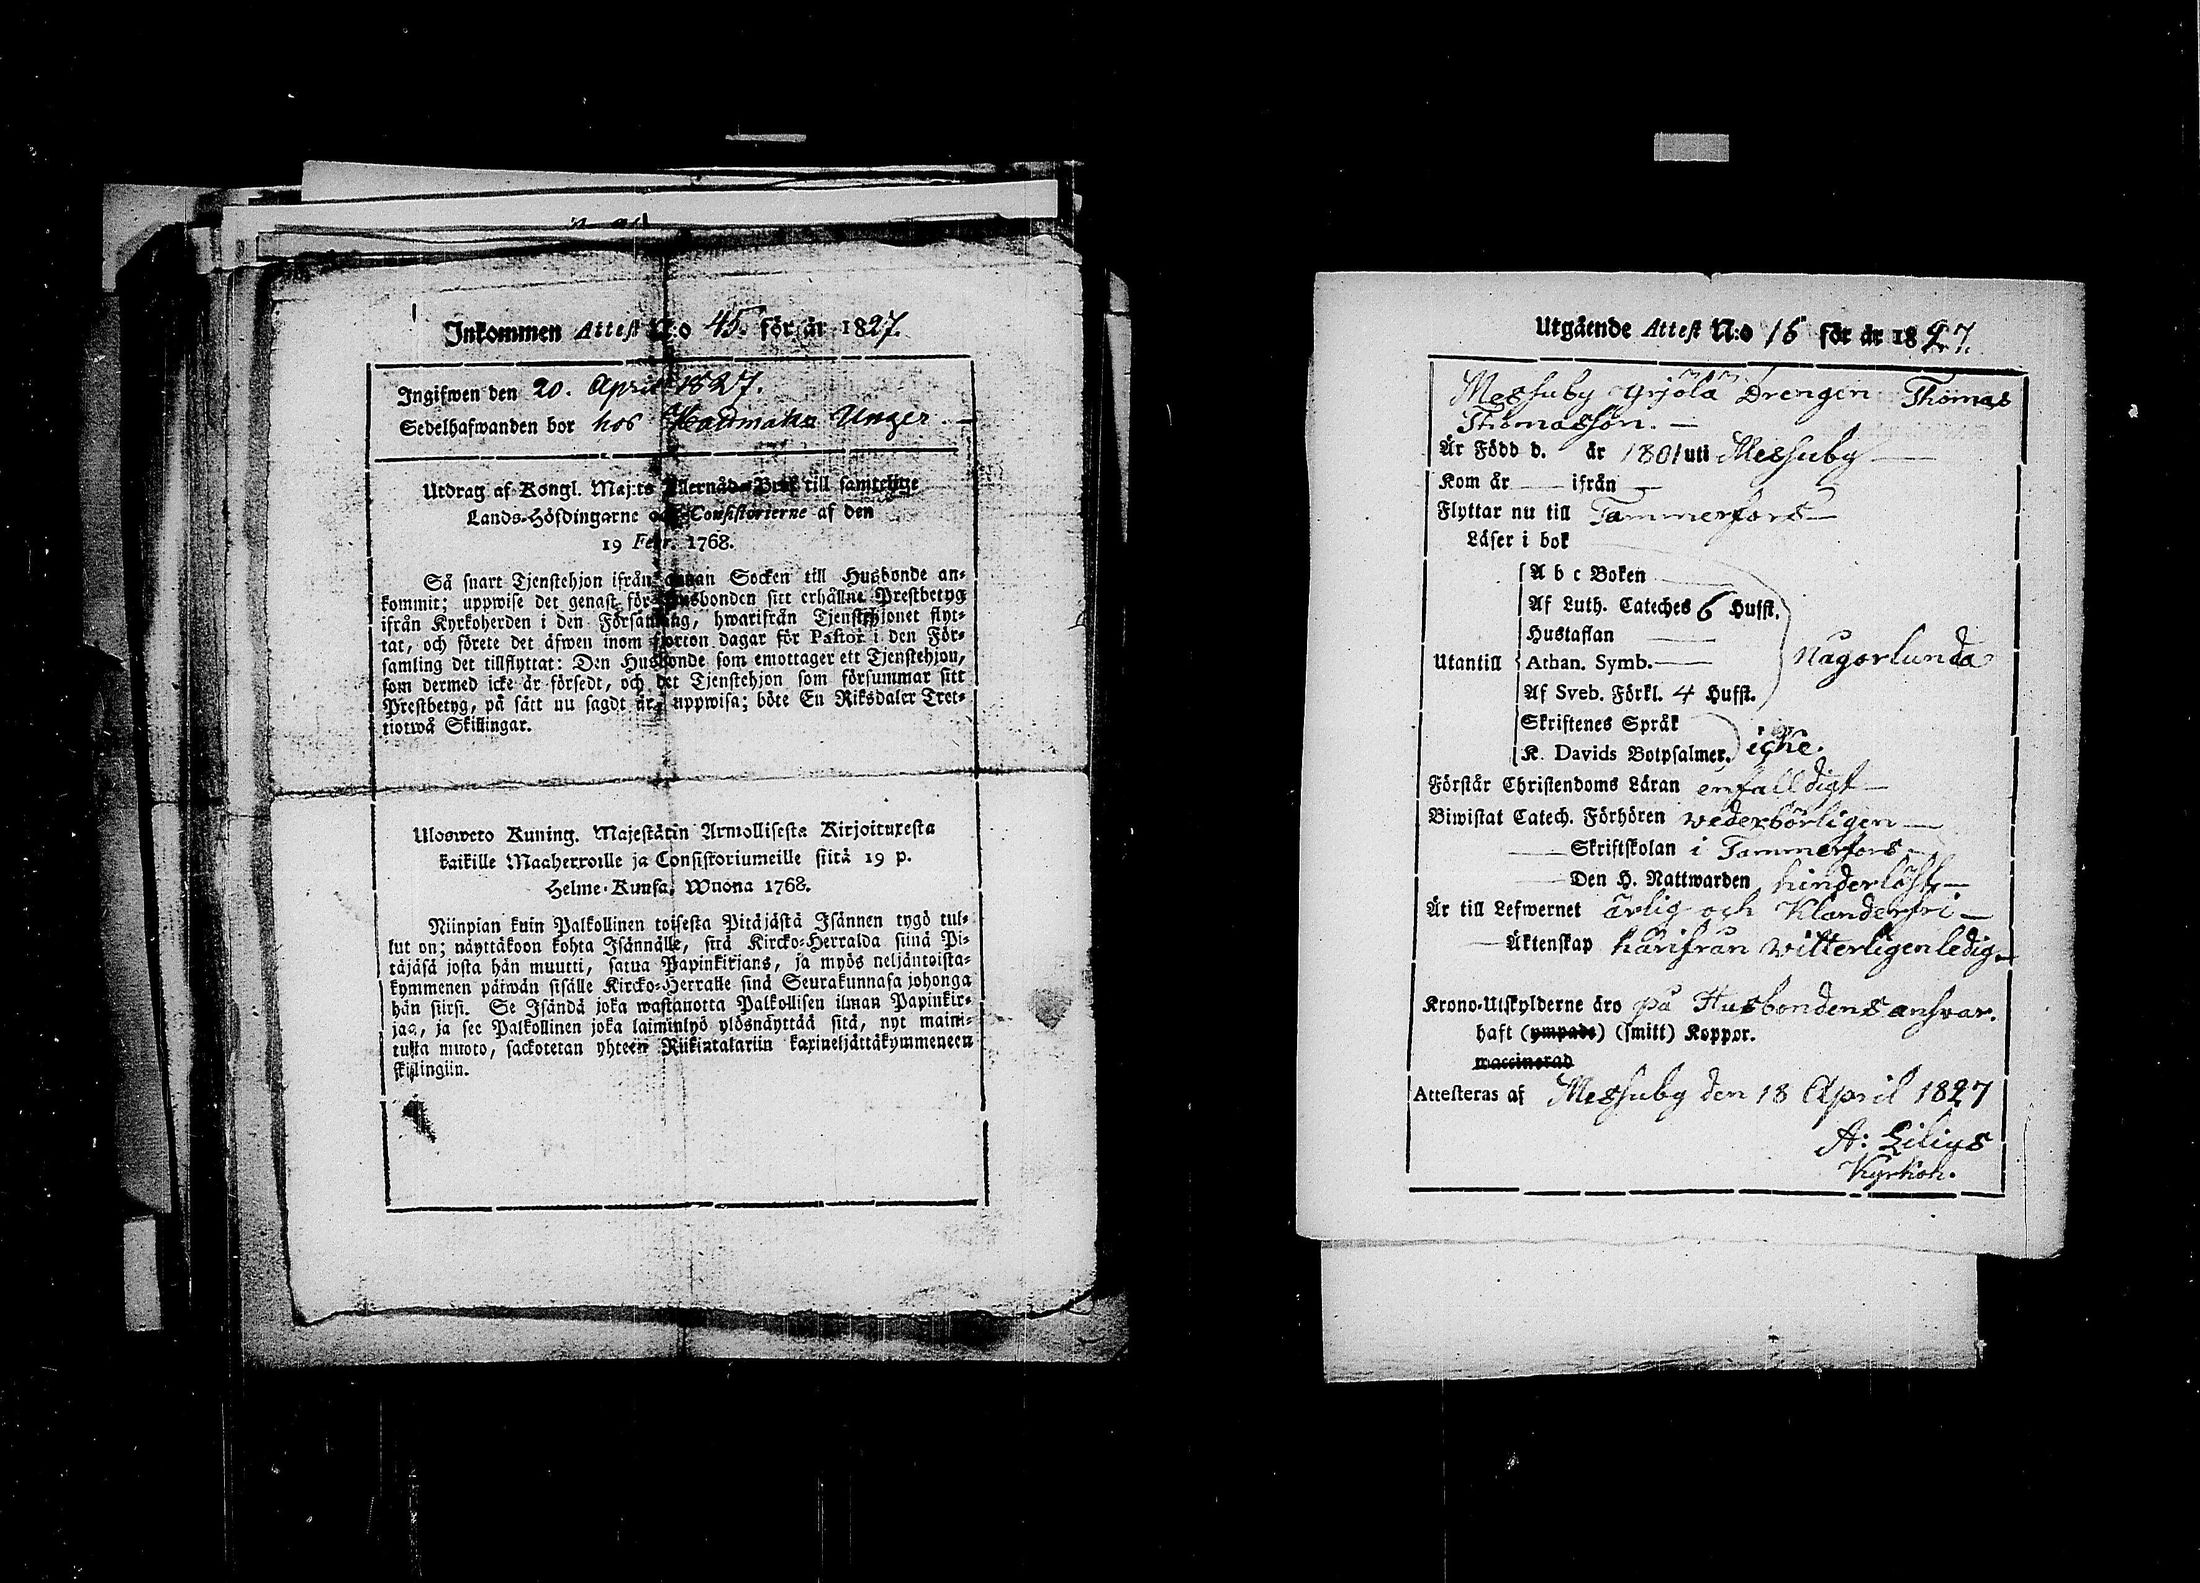 Inkommen Attest N:o 45. för år 1827.
Ingifwen den 20. April 1827.
Sedelhafwanden bor hos Unger
Utdrag af Kongl. Maj:ts Allernåd. Bref till samtelige
Lands-Höfdingarne och Consistorierne af den
19 Febr. 1768.
Så snart Tjenstehjon ifrån annan Socken till Husbonde an-
kommit; uppwise det genast för Husbonden sitt erhållne Prestbetyg
ifrån Kyrkoherden i den Församling, hwarifrån Tjenstehjonet flyt-
tat, och förete det äfwen inom fjorton dagar för Pastor i den För-
samling det tillflyttat: Den Husbonde som emottager ett Tjenstehjon,
som dermed icke är försedt, och det Tjenstehjon som försummar sitt
Prestbetyg, på sätt nu sagdt är, uppwisa; böte En Riksdaler Tret-
tiotwå Skillingar.
Ulosweto Kuning. Majestätin Armollisesta Kirjoituxesta
kaikille Maaherroille ja Consistoriumeille siitä 19 p.
Helme-Kuusa, Wuona 1768.
Niinpian kuin Palkollinen toisesta Pitäjästä Isännen tygö tul-
lut on; näyttäkoon kohta Isännälle, sitä Kircko-Herralda siinä Pi-
täjäsä josta hän muutti, saatua Papinkirjans, ja myös neljäntoista-
kymmenen päiwän sisälle Kircko-Herralle siinä Seurakunnasa johonga
hän siirsi. Se Isändä joka wastanotta Palkollisen ilman Papinkir-
jaa, ja see Palkollinen joka laiminlyö ylösnäyttää sitä, nyt maini-
tusta muoto, sackotetan yhteen Riikintalariin kaxineljättäkymmeneen
skillingiin.
Utgående Attest N:o 16 för år 1827.
Messuby Yrjölä Drengen Thomas
Thomasson.
Är Född d. år 1801 uti Messuby
Kom år — ifrån —
Flyttar nu till Tammerfors
Läser i bok
A b c Boken
Af Luth. Cateches 6 Hufst.
Hustaflan
Utantill Athan. Symb. någorlunda
Af Sveb. Förkl. 4 Hufst.
Skriftenes Språk
K. Davids Botpsalmer, icke.
Förstår Christendoms Läran enfalldigt
Biwistat Catech. Förhören wederbörligen
— Skriftskolan i Tammerfors
— Den H. Nattwarden hinderlöst
Är till Lefwernet ärlig och Klanderfri
— Äktenskap härifrån witterligen ledig.
Krono-Utskylderne äro på Husbondens answar.
haft (ympade) (smitt) Koppor.
waccinerad
Attesteras af Messuby den 18 April 1827
A: Lilius
Kyrkoh.